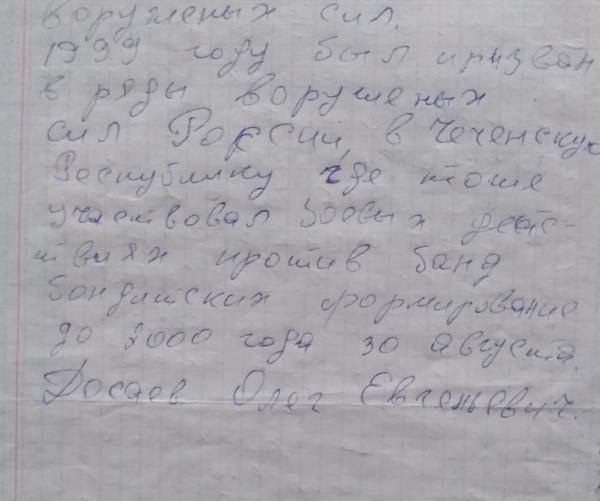 воруженых сил.
1999 году был призван
в ряды воруженых
сил России, в Чеченскую
Республику где тоже
участвовал боевых дейс-
твиях против банд
бандитских формирование
до 2000 года 30 августа.
Досаев Олег Евгеньевич.